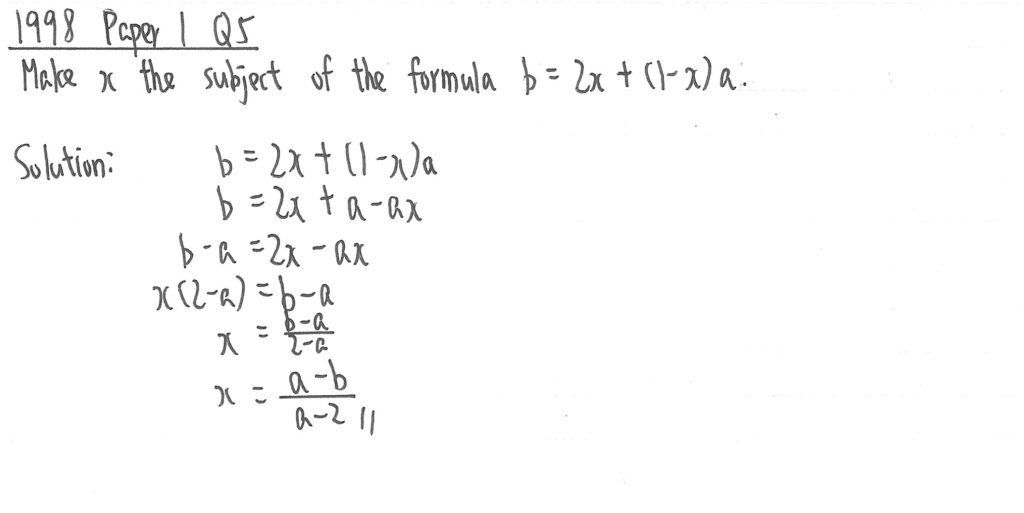 1998 Paper 1 Q5
Make x the subject of the formula b = 2x + (1-x)a.
Solution: b = 2x + (1-x)a
b = 2x + a - ax
b-a = 2x - ax
x(2-a) = b-a
x = \frac{b-a}{2-a}
x = \frac{a-b}{a-2} //